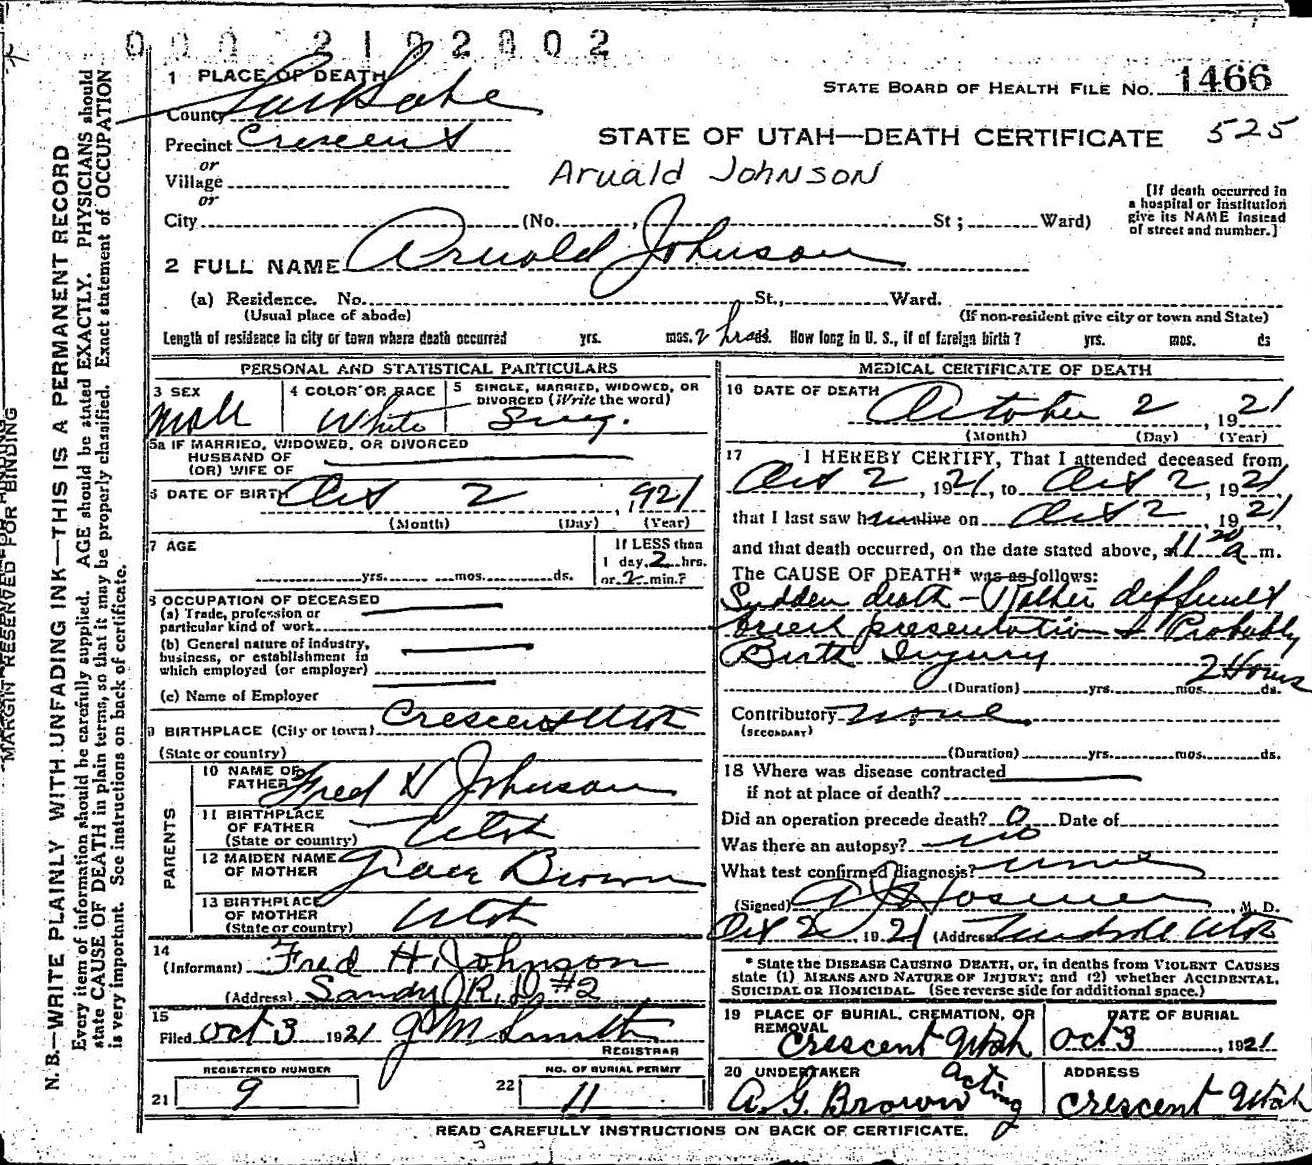 0 0 0 2 1 0 2 8 0 2
1 PLACE OF DEATH
STATE BOARD OF HEALTH FILE No. 1466
County Salt Lake
525
Precinct Crescent
STATE OF UTAH—DEATH CERTIFICATE
or
Village
Arvald Johnson
or
[If death occurred in
a hospital or institution
give its NAME instead
of street and number.]
City (No. St; Ward)
2 FULL NAME Arvald Johnson
(a) Residence. No. St., Ward.
(Usual place of abode) (If non-resident give city or town and State)
Length of residence in city or town where death occurred yrs. mos. 2 hrs ds. How long in U. S., if of foreign birth? yrs. mos. ds
PERSONAL AND STATISTICAL PARTICULARS
3 SEX
Male
4 COLOR OR RACE
White
5 SINGLE, MARRIED, WIDOWED, OR
DIVORCED (Write the word)
Sing.
5a IF MARRIED, WIDOWED, OR DIVORCED
HUSBAND OF
(OR) WIFE OF
6 DATE OF BIRTH Oct 2, 1921
(Month) (Day) (Year)
7 AGE
yrs. mos. ds.
If LESS than
1 day, 2 hrs.
or 2 min.?
8 OCCUPATION OF DECEASED
(a) Trade, profession or
particular kind of work
(b) General nature of industry,
business, or establishment in
which employed (or employer)
(c) Name of Employer
9 BIRTHPLACE (City or town) Crescent Utah
(State or country)
PARENTS
10 NAME OF
FATHER Fred H Johnson
11 BIRTHPLACE
OF FATHER
(State or country) Utah
12 MAIDEN NAME
OF MOTHER Grace Brown
13 BIRTHPLACE
OF MOTHER
(State or country) Utah
14
(Informant) Fred H. Johnson
(Address) Sandy R.D. #2
15
Filed Oct 3 1921 J M Smith
REGISTRAR
REGISTERED NUMBER
21 9
NO. OF BURIAL PERMIT
22 11
MEDICAL CERTIFICATE OF DEATH
16 DATE OF DEATH
October 2, 1921
(Month) (Day) (Year)
17 I HEREBY CERTIFY, That I attended deceased from
Oct 2, 1921, to Oct 2, 1921
that I last saw him alive on Oct 2 1921
and that death occurred, on the date stated above, at 11 20 a m.
The CAUSE OF DEATH* was as follows:
Sudden death - Rather difficult
breech presentation & Probably
Birth Injury 2 Hours
(Duration) yrs. mos. ds.
Contributory none
(SECONDARY)
(Duration) yrs. mos. ds.
18 Where was disease contracted
if not at place of death?
Did an operation precede death? 0 Date of
Was there an autopsy? no
What test confirmed diagnosis? none
(Signed) M. D.
Oct 2, 1921 (Address) Midvale Utah
* State the DISEASE CAUSING DEATH, or, in deaths from VIOLENT CAUSES
state (1) MEANS AND NATURE OF INJURY; and (2) whether ACCIDENTAL,
SUICIDAL OR HOMICIDAL. (See reverse side for additional space.)
19 PLACE OF BURIAL, CREMATION, OR
REMOVAL
Crescent Utah
DATE OF BURIAL
Oct 3, 1921
20 UNDERTAKER
acting
A. G. Brown
ADDRESS
Crescent Utah
READ CAREFULLY INSTRUCTIONS ON BACK OF CERTIFICATE.
MARGIN RESERVED FOR BINDING
N. B.—WRITE PLAINLY WITH UNFADING INK—THIS IS A PERMANENT RECORD
Every item of information should be carefully supplied. AGE should be stated EXACTLY. PHYSICIANS should
state CAUSE OF DEATH in plain terms, so that it may be properly classified. Exact statement of OCCUPATION
is very important. See instructions on back of certificate.